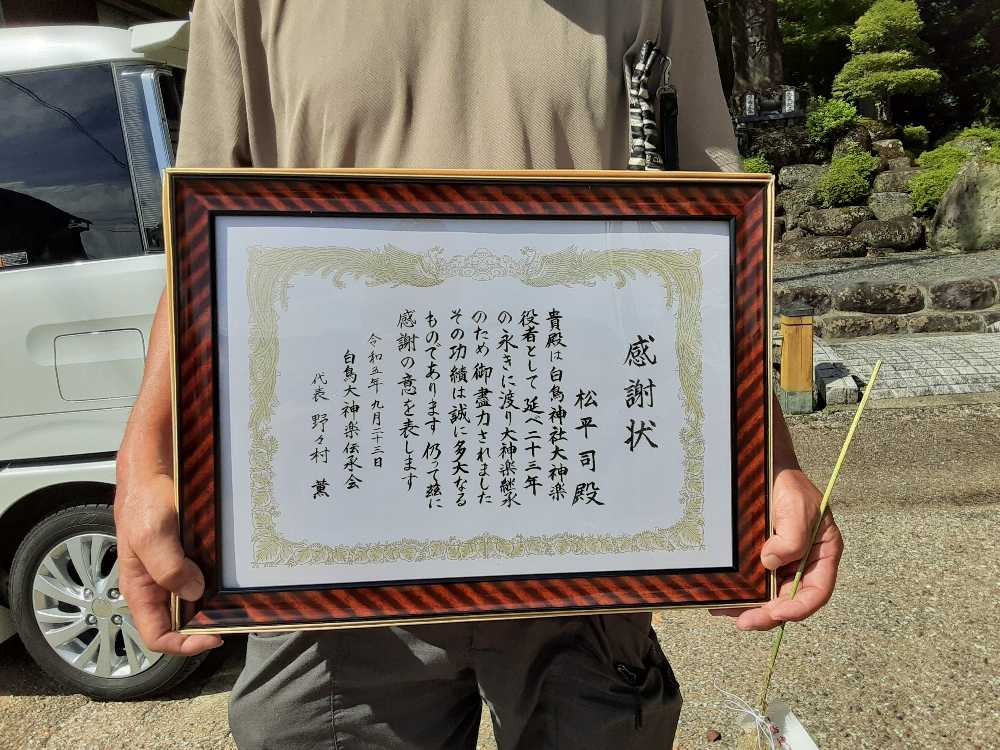 感謝状
松平司殿
貴殿は白鳥神社大神楽
役者として延べ二十三年
の永きに渡り大神楽継承
のため御盡力されました
その功績は誠に多大なる
ものであります 仍って玆に
感謝の意を表します
令和五年九月二十三日
白鳥大神楽伝承会
代表 野々村 薫